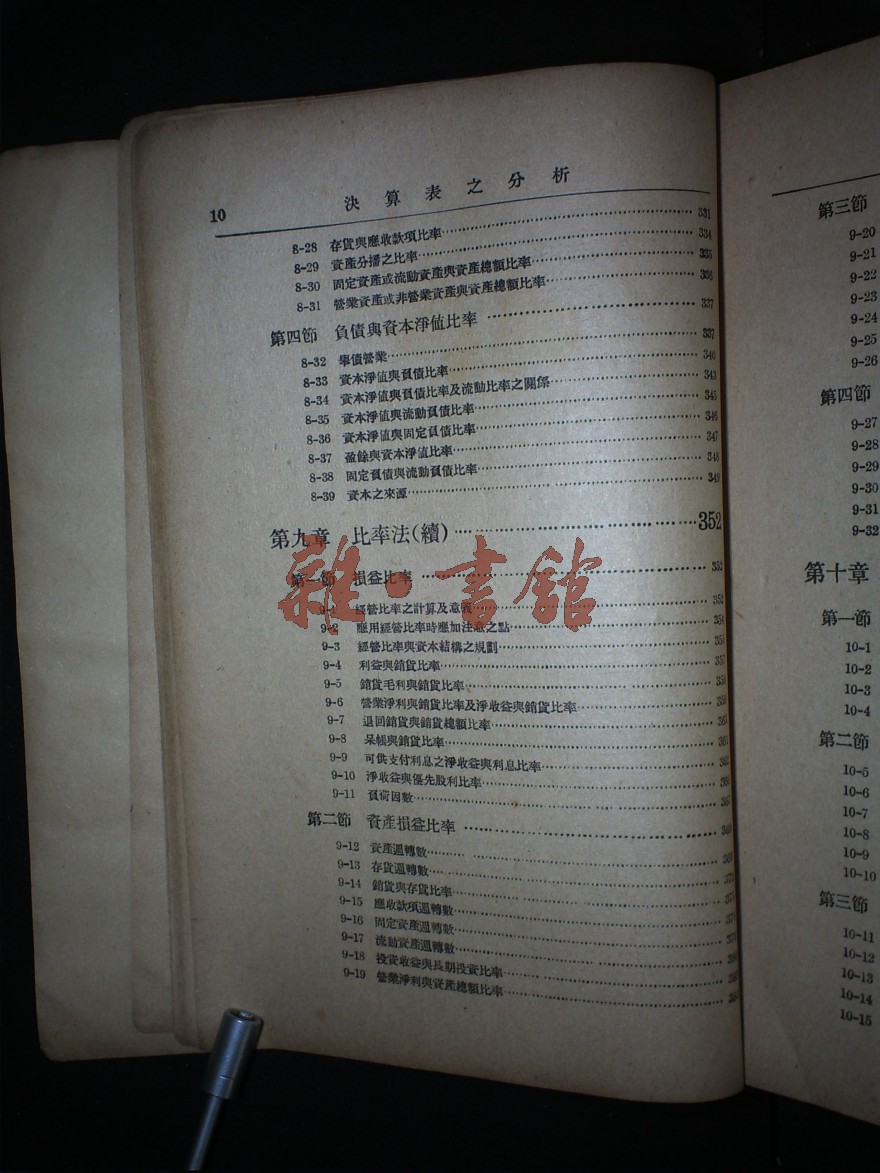 10 決算表之分析
8-28 存貨與應收款項比率 331
8-29 資產分播之比率 334
8-30 固定資產或流動資產與資產總額比率 335
8-31 營業資產或非營業資產與資產總額比率 336
第四節 負債與資本淨値比率 337
8-32 舉債營業 337
8-33 資本淨値與負債比率 340
8-34 資本淨値與負債比率及流動比率之關係 343
8-35 資本淨値與流動負債比率 345
8-36 資本淨値與固定負債比率 346
8-37 盈餘與資本淨値比率 347
8-38 固定負債與流動負債比率 348
8-39 資本之來源 349
第九章 比率法(續) 352
第一節 損益比率 352
9-1 經營比率之計算及意義 353
9-2 應用經營比率時應加注意之點 354
9-3 經營比率與資本結構之規劃
9-4 利益與銷貨比率 357
9-5 銷貨毛利與銷貨比率
9-6 營業淨利與銷貨比率及淨收益與銷貨比率
9-7 退回銷貨與銷貨總額比率
9-8 呆帳與銷貨比率
9-9 可供支付利息之淨收益與利息比率
9-10 淨收益與優先股利比率
9-11 負荷因數
第二節 資產損益比率
9-12 資產週轉數
9-13 存貨週轉數
9-14 銷貨與存貨比率
9-15 應收款項週轉數
9-16 固定資產週轉數
9-17 流動資產週轉數
9-18 投資收益與長期投資比率
9-19 營業淨利與資產總額比率
雜·書館
第三節
9-20
9-21
9-22
9-23
9-24
9-25
9-26
第四節
9-27
9-28
9-29
9-30
9-31
9-32
第十章
第一節
10-1
10-2
10-3
10-4
第二節
10-5
10-6
10-7
10-8
10-9
10-10
第三節
10-11
10-12
10-13
10-14
10-15